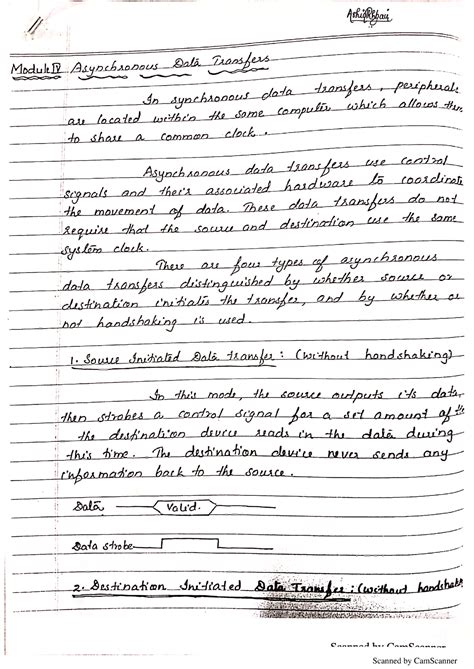 Module IV Asynchronous Data Transfers
In synchronous data transfers, peripherals
are located within the same computer which allows them
to share a common clock.
Asynchronous data transfers use control
signals and their associated hardware to coordinate
the movement of data. These data transfers do not
require that the source and destination use the same
system clock.
There are four types of asynchronous
data transfers distinguished by whether source or
destination initiates the transfer, and by whether or
not handshaking is used.
1. Source Initiated Data transfer: (without handshaking)
In this mode, the source outputs its data,
then strobes a control signal for a set amount of the
the destination device reads in the data during
this time. The destination device never sends any
information back to the source.
Data Valid.
Data strobe
2. Destination Initiated Data Transfer: (without handshak
Scanned by CamScanner
Scanned by CamScanner